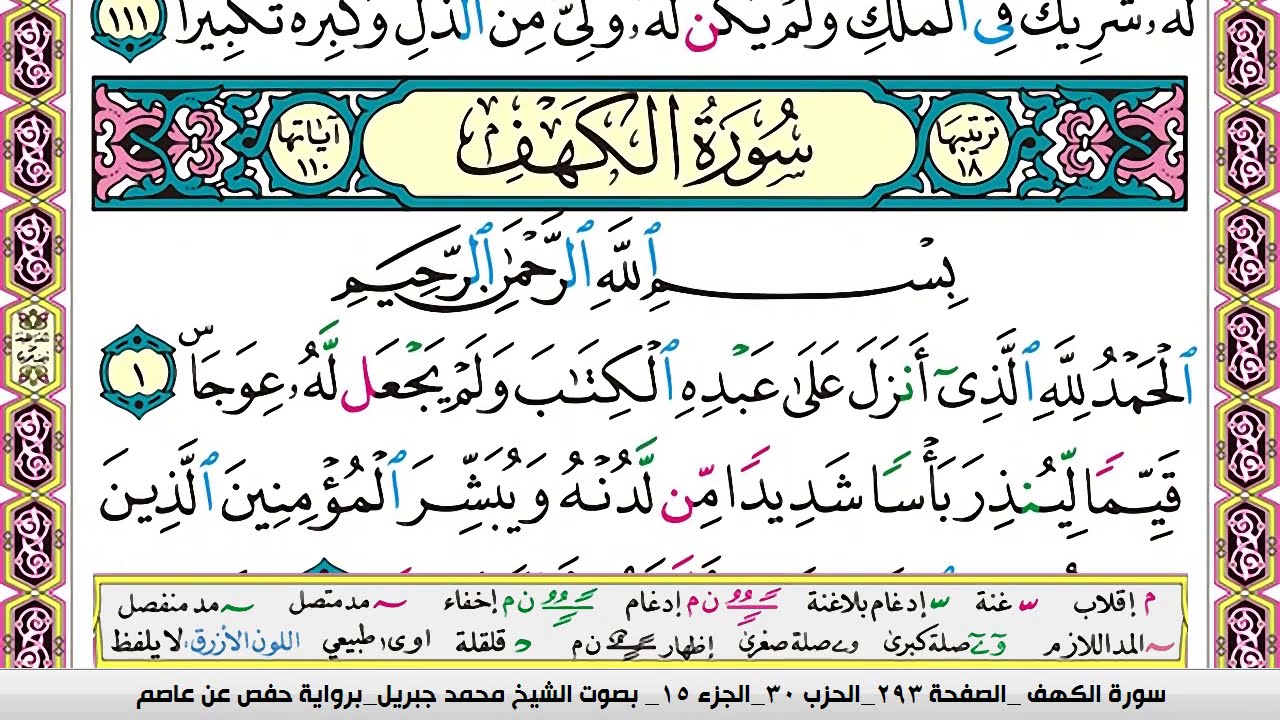 لَهُۥ شَرِيكٌ فِى ٱلْمُلْكِ وَلَمْ يَكُن لَّهُۥ وَلِىٌّ مِّنَ ٱلذُّلِّ وَكَبِّرْهُ تَكْبِيرًۢا ١١١
ترتيبها ١٨ سُورَةُ الكَهْفِ آياتها ١١٠
بِسْمِ ٱللَّهِ ٱلرَّحْمَٰنِ ٱلرَّحِيمِ
ٱلْحَمْدُ لِلَّهِ ٱلَّذِىٓ أَنزَلَ عَلَىٰ عَبْدِهِ ٱلْكِتَٰبَ وَلَمْ يَجْعَل لَّهُۥ عِوَجَاۜ ١
قَيِّمًا لِّيُنذِرَ بَأْسًا شَدِيدًا مِّن لَّدُنْهُ وَيُبَشِّرَ ٱلْمُؤْمِنِينَ ٱلَّذِينَ
م إقلاب س غنة س إدغام بلاغنة ن م إدغام ن م إخفاء مد متصل مد منفصل
المد اللازم صلة كبرى صلة صغرى إظهار ن م د قلقلة اوى طبيعي اللون الأزرق: لا يلفظ
سورة الكهف _الصفحة ٢٩٣_الحزب ٣٠_الجزء ١٥_ بصوت الشيخ محمد جبريل_برواية حفص عن عاصم